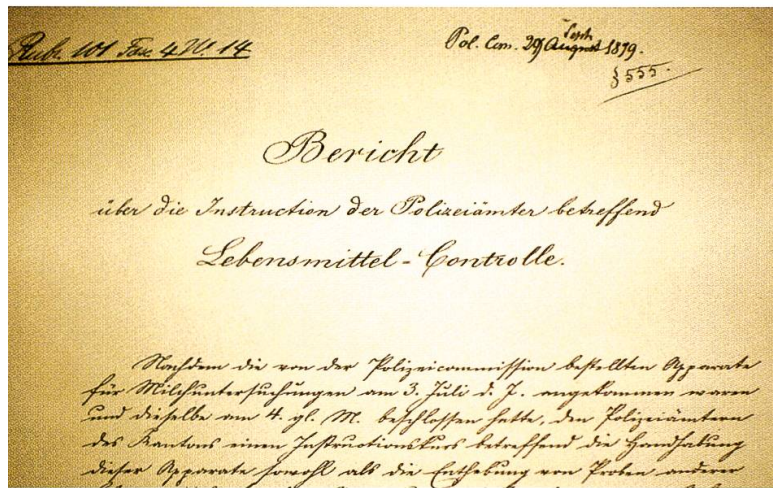 Rubr. 101 Fasc. 4 N. 14
Pol. Com. 29 August Sept 1879.
§ 555.
Bericht
über die Instruction der Polizeiämter betreffend
Lebensmittel-Controlle.
Nachdem die von der Polizeicommission bestellten Apparate
für Milchuntersuchungen am 3. Juli d. J. angekommen waren
und dieselbe am 4. gl. M. beschlossen hatte, den Polizeiämtern
des Kantons einen Instructionskurs betreffend die Handhabung
dieser Apparate sowohl als die Enthebung von Proben anderer